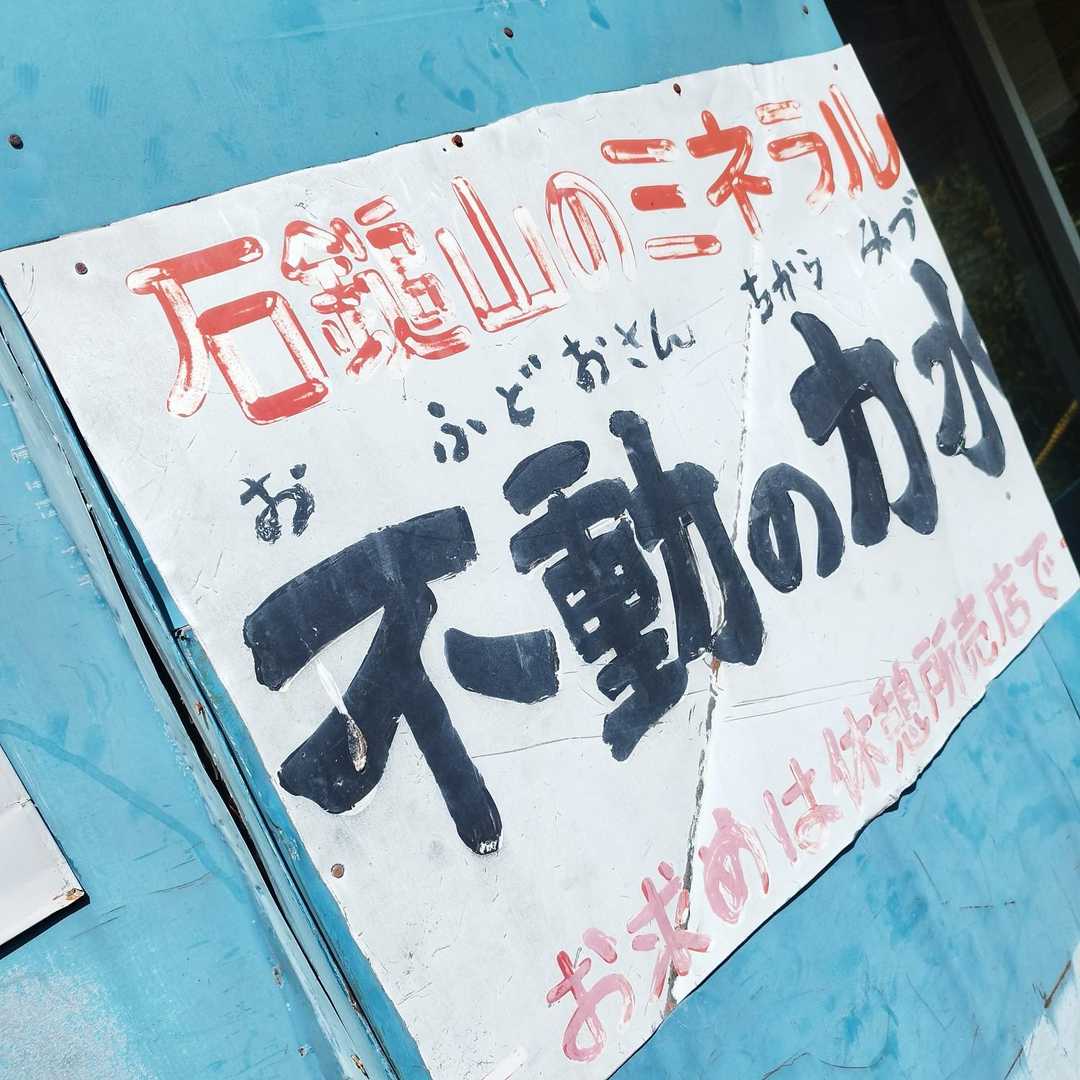 石鎚山のミネラル
お ふどおさん ちから みづ
不動の力水
お求めは休憩所売店で